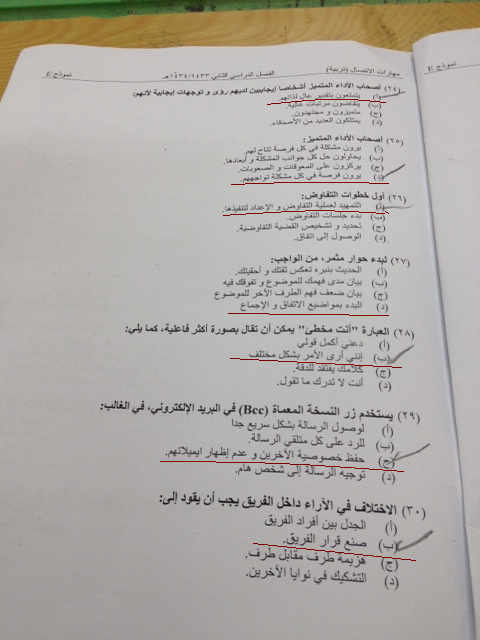 مهارات الاتصال (تربية) الفصل الدراسي الثاني ١٤٣٤/١٤٣٣هـ نموذج E
(٢٤) أصحاب الأداء المتميز أشخاصا إيجابيين لديهم رؤى و توجهات إيجابية لأنهم:
(أ) يتمتعون بتقدير عال لذاتهم.
(ب) يتقاضون مرتبات عالية.
(ج) متميزون و مجتهدون.
(د) يمتلكون العديد من الأصدقاء.
(٢٥) أصحاب الأداء المتميز:
(أ) يرون مشكلة في كل فرصة تتاح لهم.
(ب) يحاولون حل كل جوانب المشكلة و أبعادها.
(ج) يركزون على المعوقات و الصعوبات.
(د) يرون فرصة في كل مشكلة تواجههم.
(٢٦) أول خطوات التفاوض:
(أ) التمهيد لعملية التفاوض و الإعداد لتنفيذها.
(ب) بدء جلسات التفاوض.
(ج) تحديد و تشخيص القضية التفاوضية.
(د) الوصول إلى اتفاق.
(٢٧) لبدء حوار مثمر، من الواجب:
(أ) الحديث بنبره تعكس ثقتك و أحقيتك.
(ب) بيان مدى فهمك للموضوع و تفوقك فيه
(ج) بيان ضعف فهم الطرف الآخر للموضوع
(د) البدء بمواضيع الاتفاق و الإجماع
(٢٨) العبارة "أنت مخطئ" يمكن أن تقال بصورة أكثر فاعلية، كما يلي:
(أ) دعني أكمل قولي
(ب) إنني أرى الأمر بشكل مختلف
(ج) كلامك يفتقد للدقة.
(د) أنت لا تدرك ما تقول.
(٢٩) يستخدم زر النسخة المعماة (Bcc) في البريد الإلكتروني، في الغالب:
(أ) لوصول الرسالة بشكل سريع جدا
(ب) للرد على كل متلقي الرسالة.
(ج) حفظ خصوصية الآخرين و عدم إظهار ايميلاتهم.
(د) توجيه الرسالة إلى شخص هام.
(٣٠) الاختلاف في الآراء داخل الفريق يجب أن يقود إلى:
(أ) الجدل بين أفراد الفريق
(ب) صنع قرار الفريق.
(ج) هزيمة طرف مقابل طرف.
(د) التشكيك في نوايا الآخرين.
نموذج E